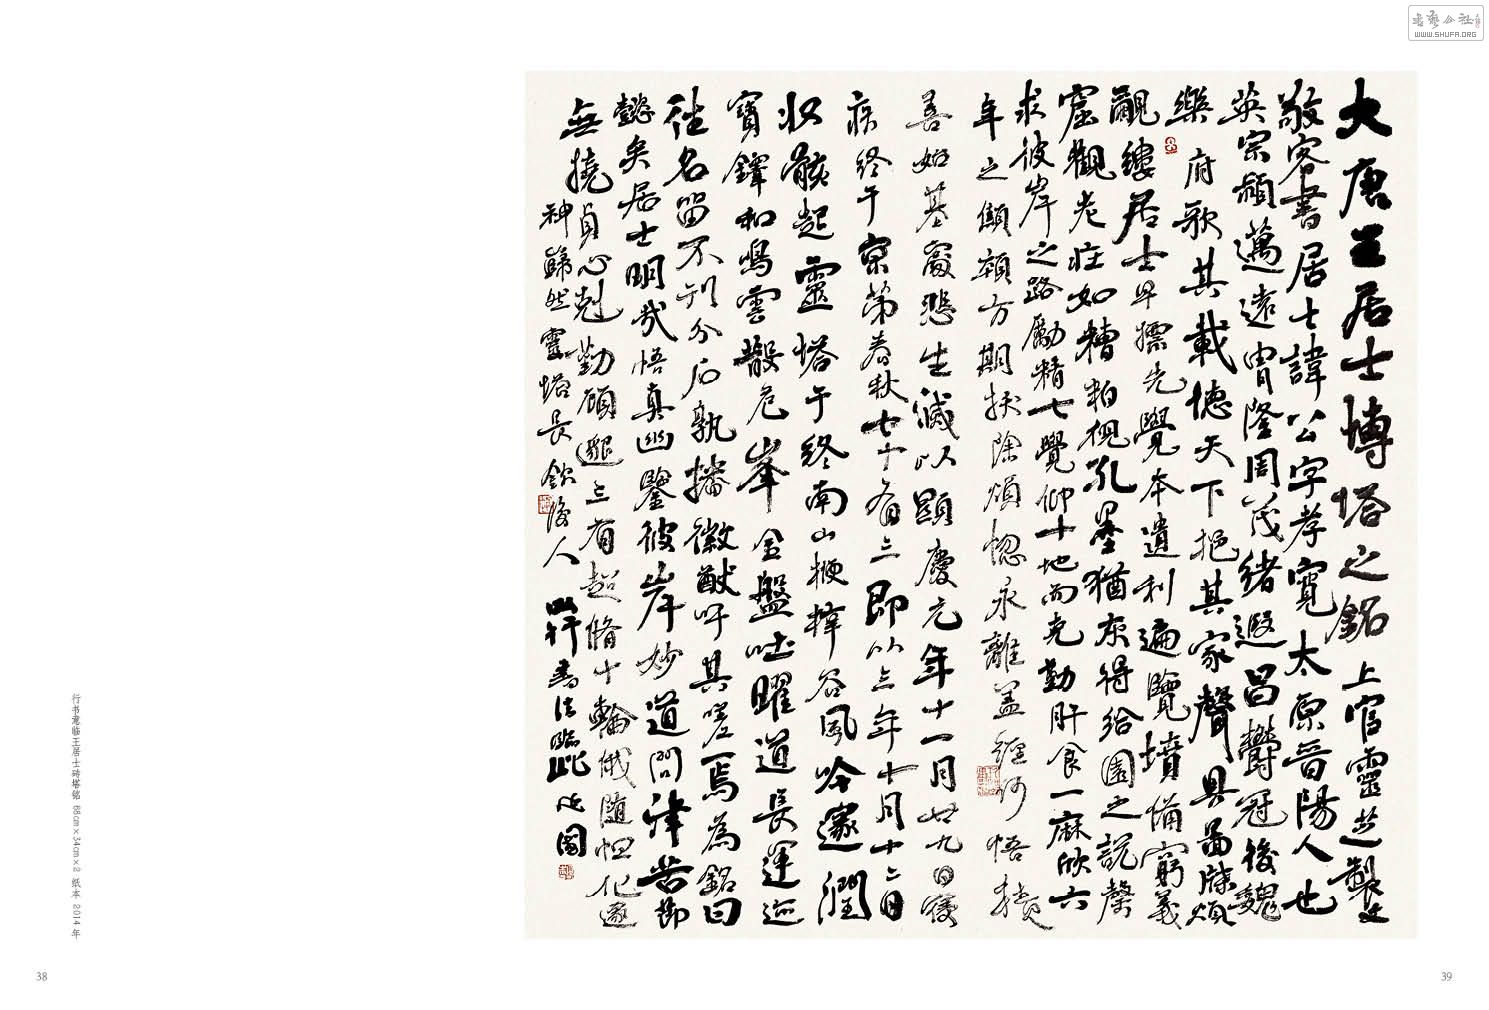 大唐王居士塼塔之銘上官靈芝製文
敬客書居士諱公字孝寬太原晉陽人也
英宗穎邁遠冑隆周茂緒遐昌鬱冠後魏
樂府歌其載德天下挹其家聲具啚牒煩
覼縷居士早摽先覺本遺利遍覽墳備窮義
窟觀老莊如糟粕視孔墨猶灰得給園之說馨
求彼岸之路勵精七覺仰十地而克勤旰食一麻欣六
年之憔顇方期拔除煩惱永離蓋纏何悟積
善始基處悲生滅以顯慶元年十一月廿九日寢
疾終于京第春秋七十有三即以三年十月十二日
收骸起靈塔于終南山梗梓谷風吟邃澗
寶鐸和鳴雲散危峯金盤吐曜道長運迮
往名留不刊介石孰播徽猷吁其嗟焉為銘曰
懿矣居士明哉悟真幽鑒彼岸妙道問津苦節
無撓貞心剋勤顧邈三有超脩十輪俄隨怛化遽
神歸然靈塔長欽後人 以行書法臨此
行书意临王居士砖塔铭 68cm×34cm×2 纸本 2014年
38
39
書藝公社
WWW.SHUFA.ORG